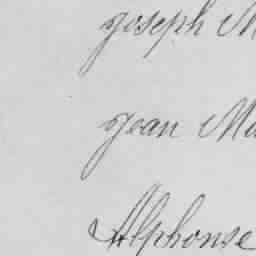 Joseph M
Jean Mi
Alphonse